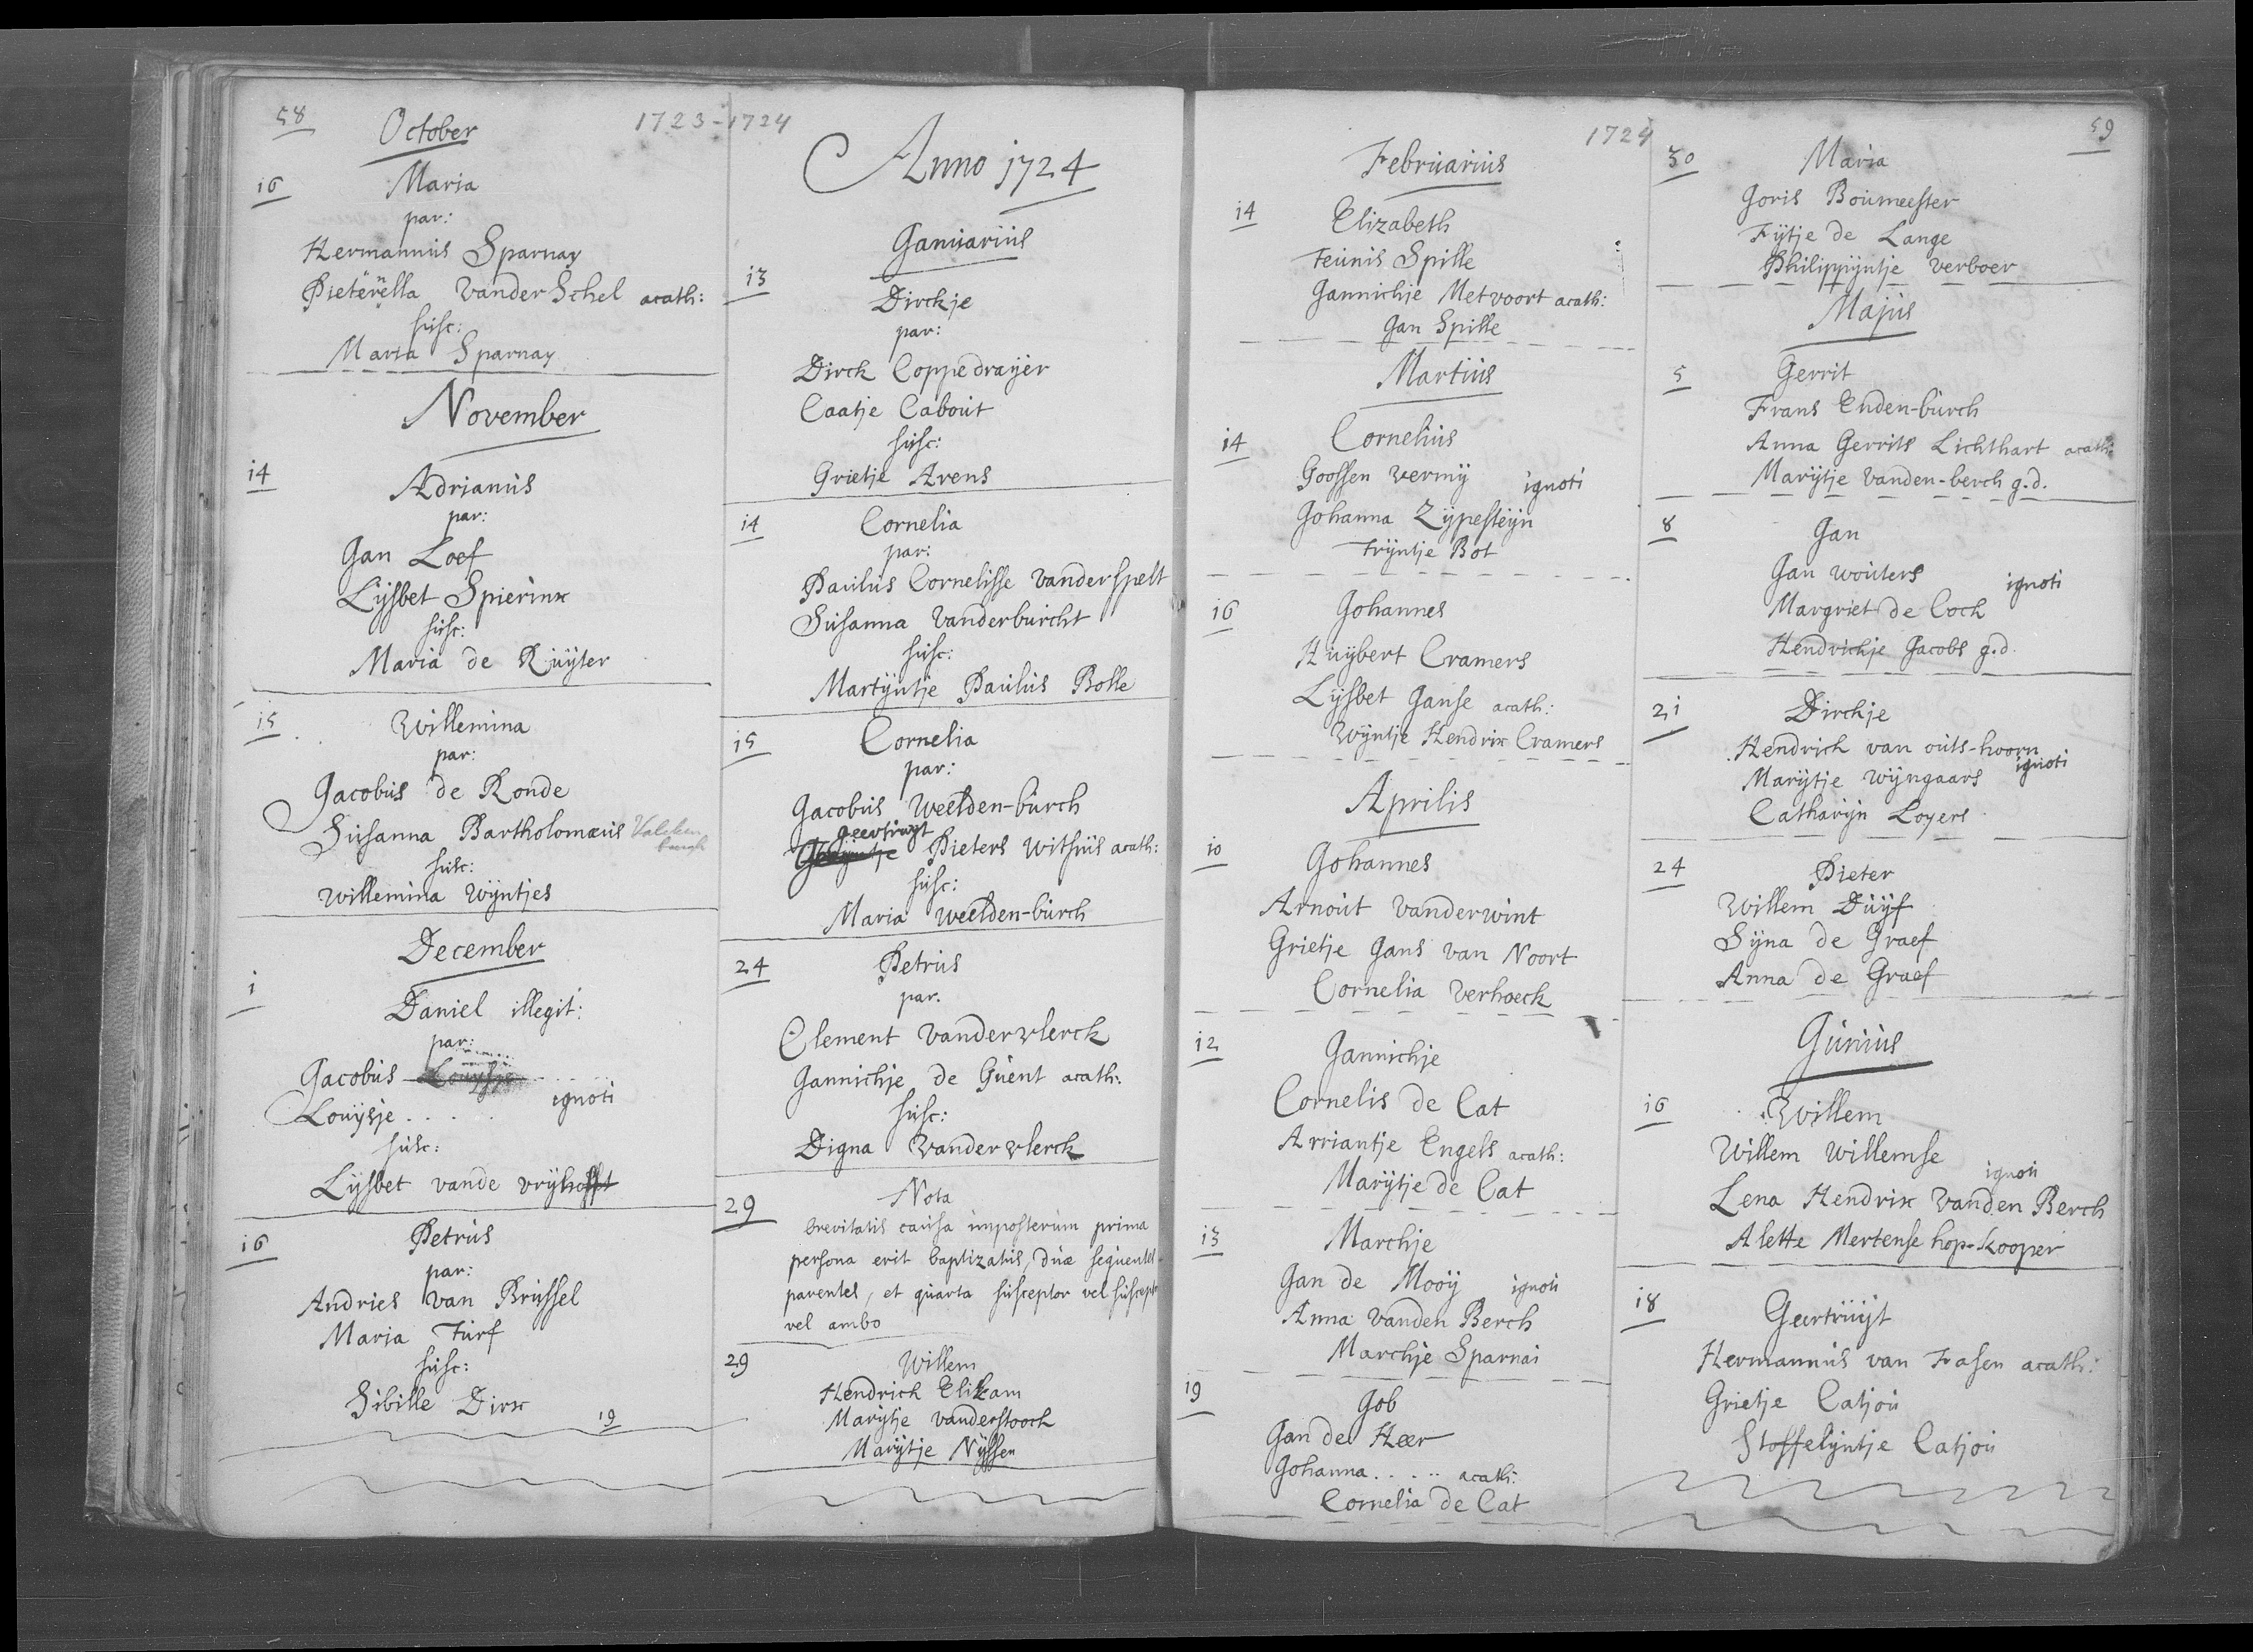 58
1723-1724
October
16 Maria
par:
Hermannus Sparnay
Pieterella vander Schel acath:
susc:
Maria Sparnay
November
14 Adrianus
par:
Jan Loef
Lijsbet Spierinx
susc:
Maria de Ruijter
15 Willemina
par:
Jacobus de Ronde
Susanna Bartholomæus Valckenburgh
susc:
Willemina Wijntjes
December
1 Daniel illegit:
par:
Jacobus Louysje . . . .
Louijsje . . . . ignoti
susc:
Lijsbet vande vrijhofft
16 Petrus
par:
Andries van Brussel
Maria Turf
susc:
Sibille Dirx
19
Anno 1724
Januarius
13 Dirckje
par:
Dirck Coppedraijer
Caatje Cabout
susc:
Grietje Arens
14 Cornelia
par:
Paulus Cornelisse vanderspelt
Susanna vanderburcht
susc:
Martijntje Paulus Bolle
15 Cornelia
par:
Jacobus Weelden-burch
geertruijt
Pieters Withus acath:
susc:
Maria weelden-burch
24 Petrus
par.
Clement vandervlerck
Jannichje de Guent acath:
susc:
Digna vandervlerck
29 Nota
brevitatis causa imposterum prima
persona erit baptizatus, duæ sequentes
parentes, et quarta susceptor vel suscept
vel ambo
29 Willem
Hendrick Elikam
Marijtje vanderstoock
Marijtje Nijssen
1724
Februarius
14 Elizabeth
Teunis Spille
Jannichje Metvoort acath:
Jan Spille
Martius
14 Cornelius
Goossen vermij ignoti
Johanna Zijpesteijn
Trijntje Bot
16 Johannes
Huijbert Cramers
Lijsbet Janse acath:
Wijntje Hendrix Cramers
Aprilis
10 Johannes
Arnout vanderwint
Grietje Jans van Noort
Cornelia verhoeck
12 Jannichje
Cornelis de Cat
Arriantje Engels acath:
Marijtje de Cat
13 Marchje
Jan de Mooij ignoti
Anna vanden Berch
Marchje Sparnai
19 Job
Jan de Heer
Johanna . . . . . acath:
Cornelia de Cat
59
30 Maria
Joris Boumeester
Fijtje de Lange
Philippijntje verboer
Majus
5 Gerrit
Frans Enden-burch
Anna Gerrits Lichthart acath:
Marijtje vanden-berch g.d.
8 Jan
Jan wouters ignoti
Margriet de Cock
Hendrickje Jacobs g.d.
21 Dirckje
Hendrick van outs-hoorn
Marijtje Wijngaars ignoti
Catharijn Loyers
24 Pieter
Willem Duijf
Sijna de Graef
Anna de Graef
Junius
16 Willem
Willem Willemse ignoti
Lena Hendrix vanden Berch
Alette Mertense hop-kooper
18 Geertruijt
Hermannus van Fasen acath:
Grietje Catjou
Stoffelijntje Catjou